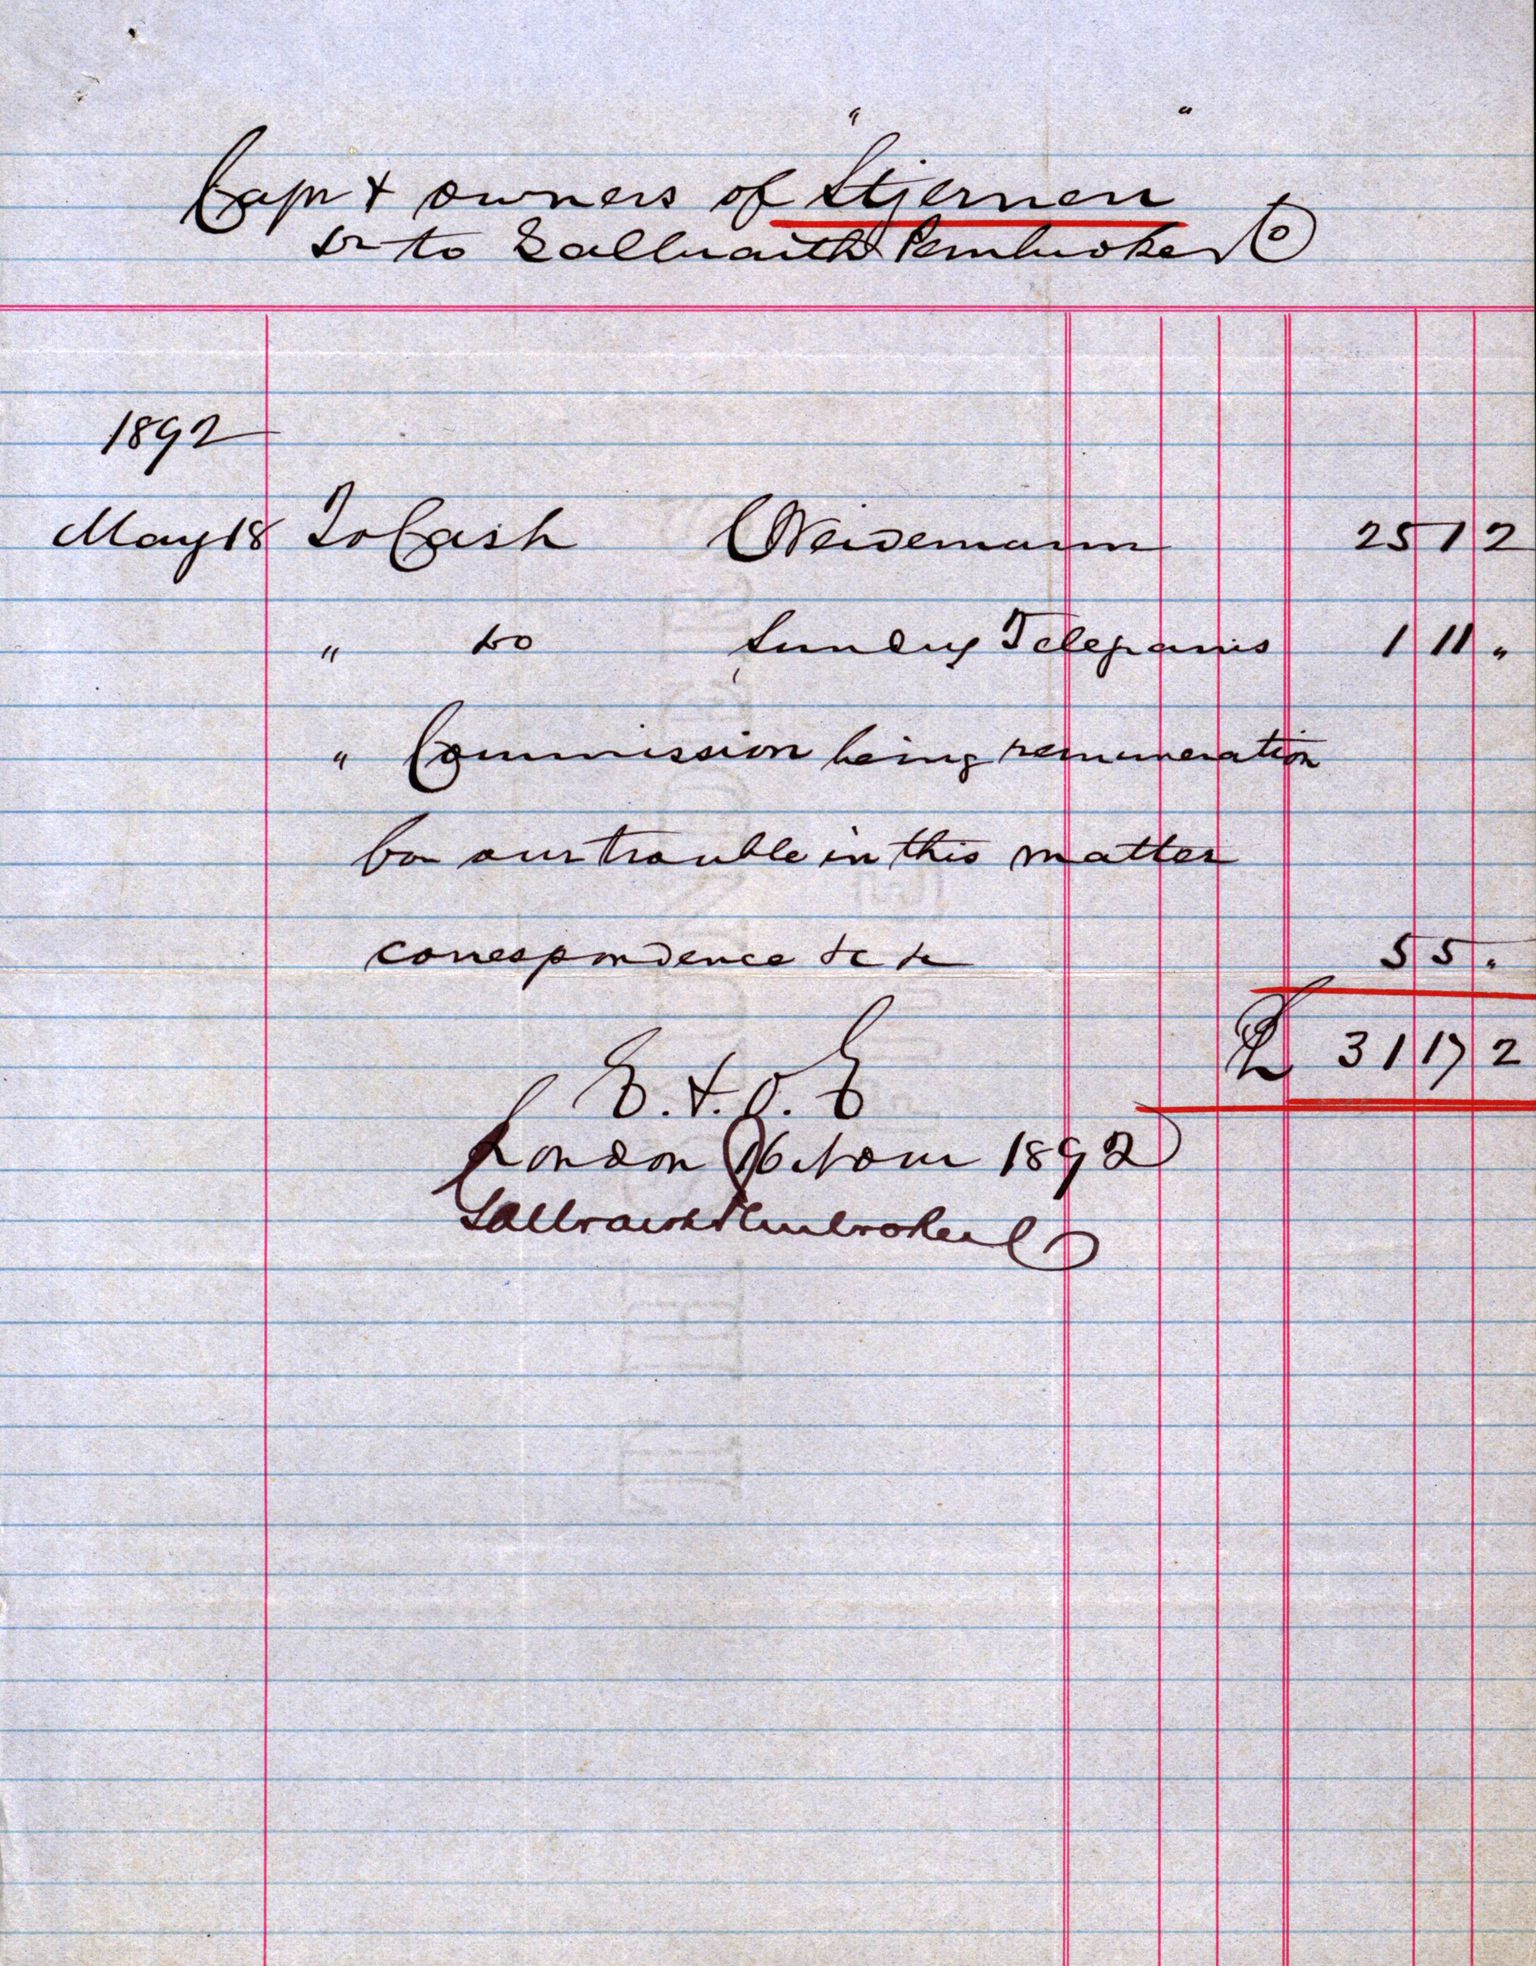 Capn & owners of "Stjernen"
Dr to Galbraith Pembroke & Co
1892
May 18 To Cash C Weidemann 25 1 2
" Do Sundry Telegrams 1 11 "
" Commission being remuneration
for our trouble in this matter
correspondence &c &c 5 5 "
£ 31 17 2
E. & O. E
London October 1892
Galbraith Pembroke & Co